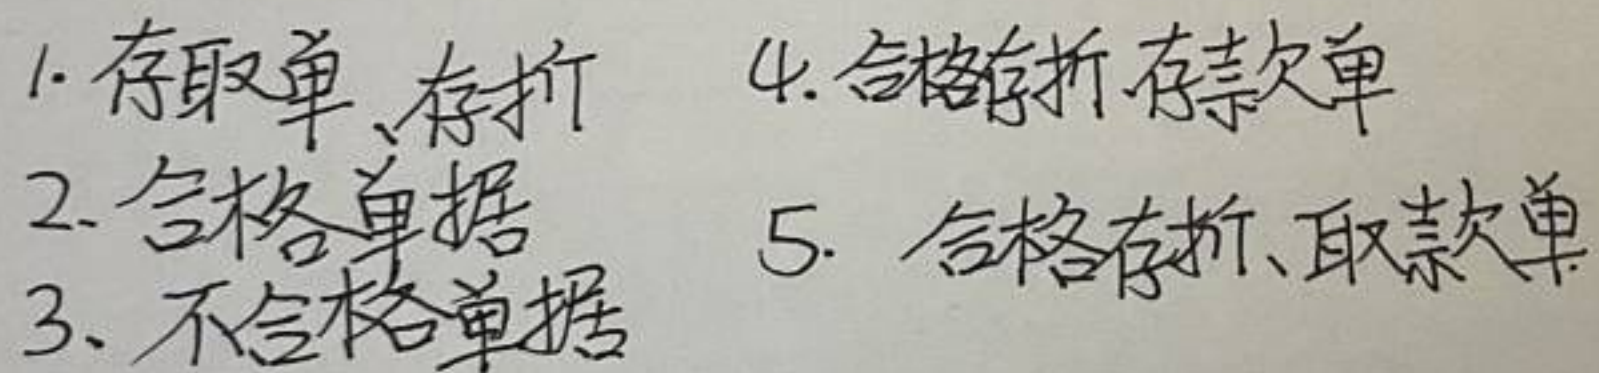 1. 存取单、存折
2. 合格单据
3、不合格单据
4. 合格存折、存款单
5. 合格存折、取款单